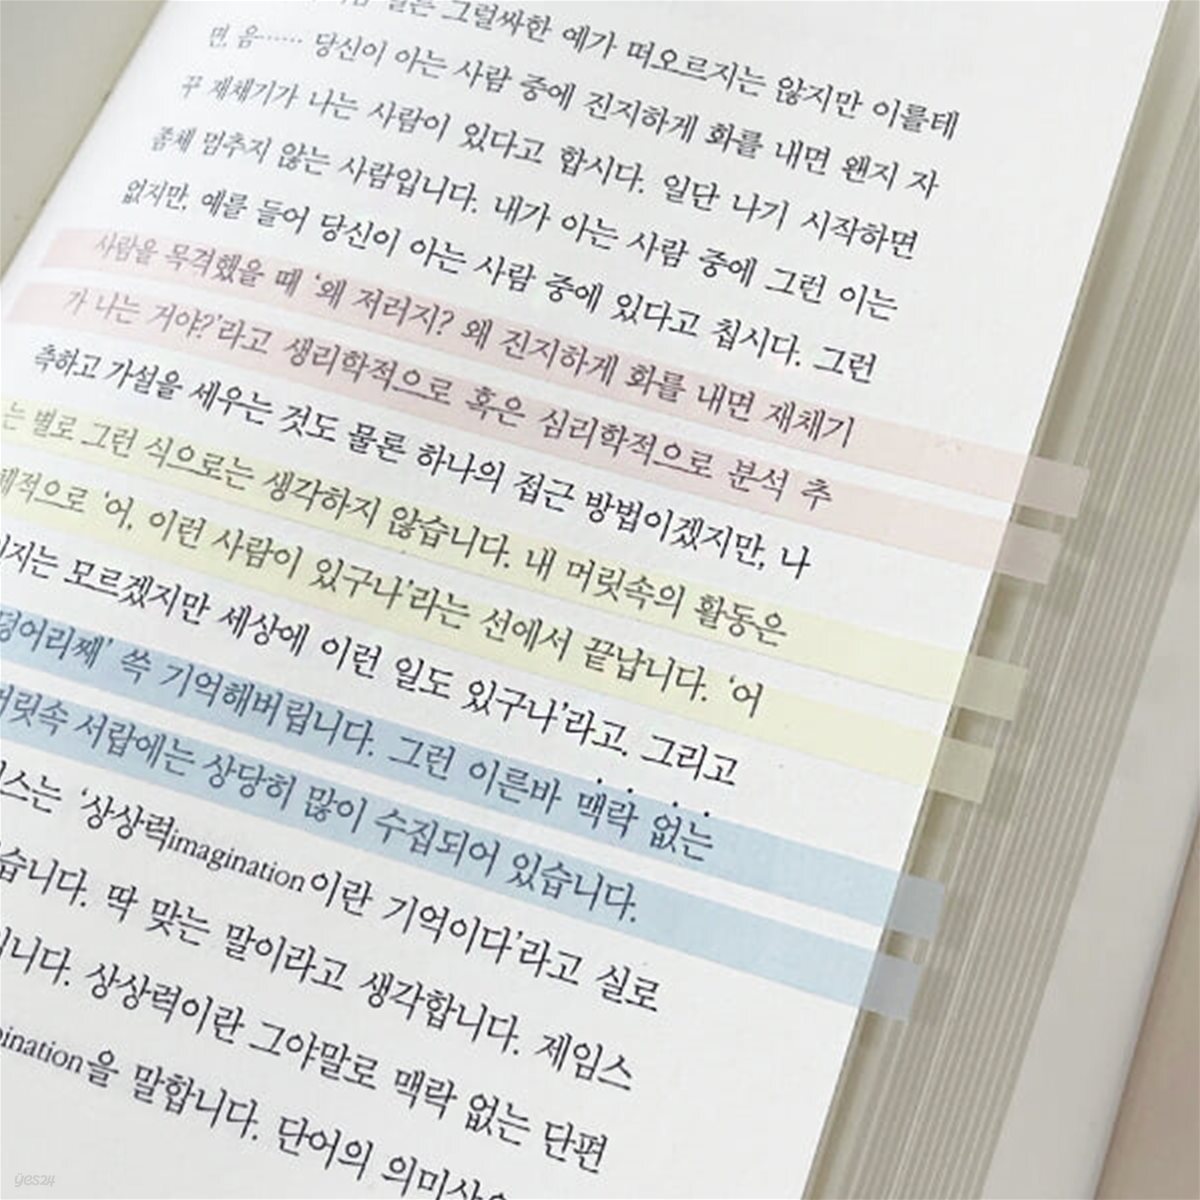 그럴싸한 예가 떠오르지는 않지만 이를테
면, 음…… 당신이 아는 사람 중에 진지하게 화를 내면 왠지 자
꾸 재채기가 나는 사람이 있다고 합시다. 일단 나기 시작하면
좀체 멈추지 않는 사람입니다. 내가 아는 사람 중에 그런 이는
없지만, 예를 들어 당신이 아는 사람 중에 있다고 칩시다. 그런
사람을 목격했을 때 ‘왜 저러지? 왜 진지하게 화를 내면 재채기
가 나는 거야?’라고 생리학적으로 혹은 심리학적으로 분석 추
측하고 가설을 세우는 것도 물론 하나의 접근 방법이겠지만, 나
는 별로 그런 식으로는 생각하지 않습니다. 내 머릿속의 활동은
제적으로 ‘어, 이런 사람이 있구나’라는 선에서 끝납니다. ‘어
지는 모르겠지만 세상에 이런 일도 있구나’라고. 그리고
덩어리째’ 쓱 기억해버립니다. 그런 이른바 맥락 없는
머릿속 서랍에는 상당히 많이 수집되어 있습니다.
스는 ‘상상력imagination이란 기억이다’라고 실로
습니다. 딱 맞는 말이라고 생각합니다. 제임스
니다. 상상력이란 그야말로 맥락 없는 단편
ination을 말합니다. 단어의 의미상
yes24